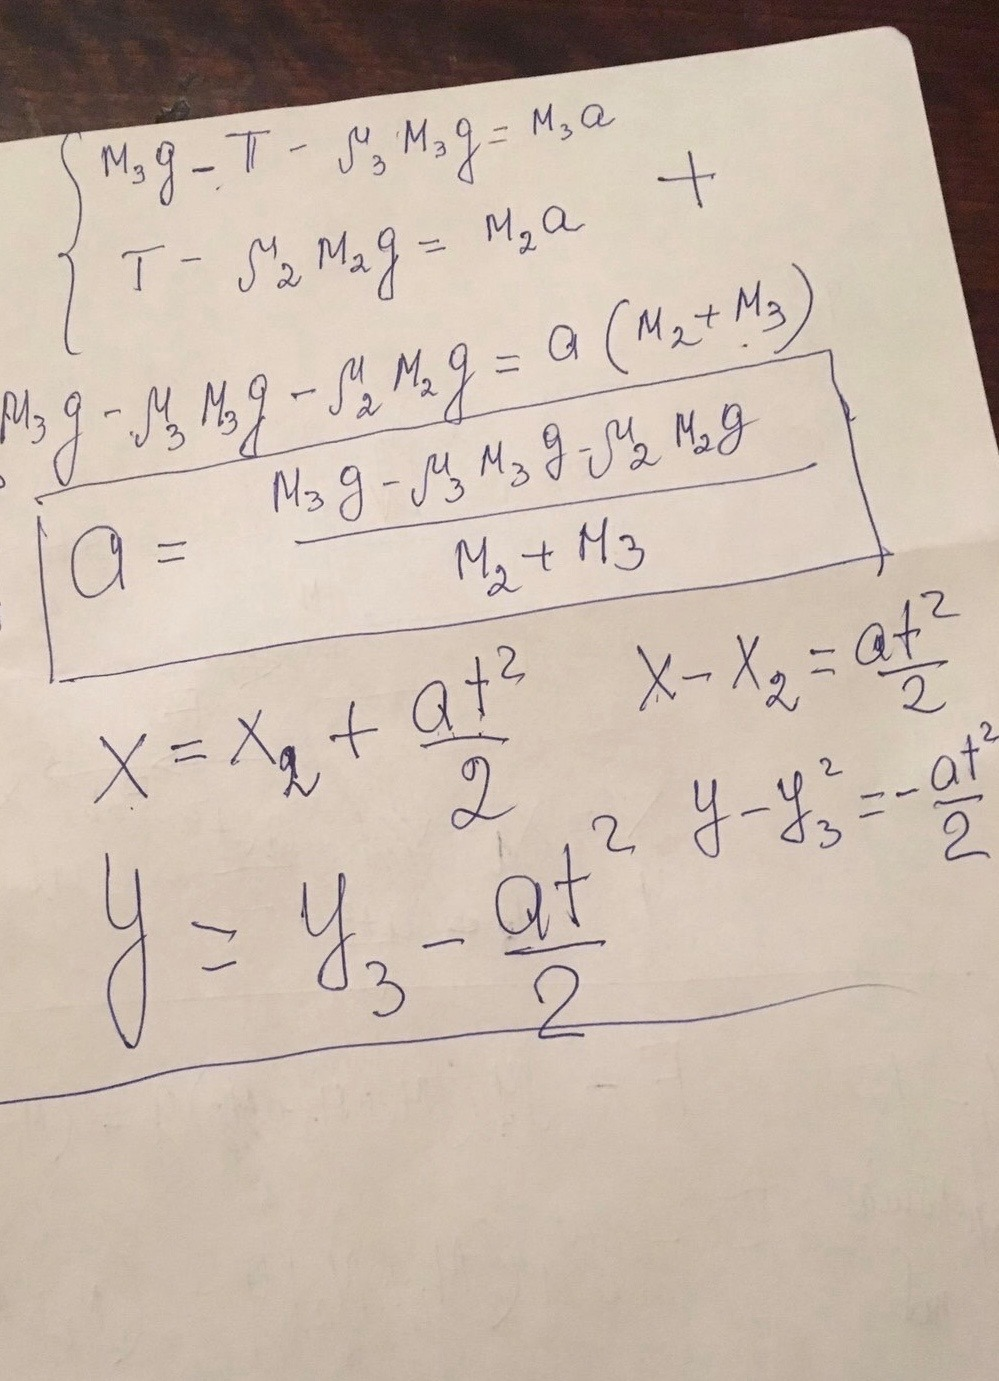 M₃g - T - μ₃M₃g = M₃a
T - μ₂M₂g = M₂a
+
M₃g - μ₃M₃g - μ₂M₂g = a(M₂ + M₃)
a = (M₃g - μ₃M₃g - μ₂M₂g) / (M₂ + M₃)
x = x₂ + at²/2
x - x₂ = at²/2
y - y₃² = - at²/2
y = y₃ - at²/2